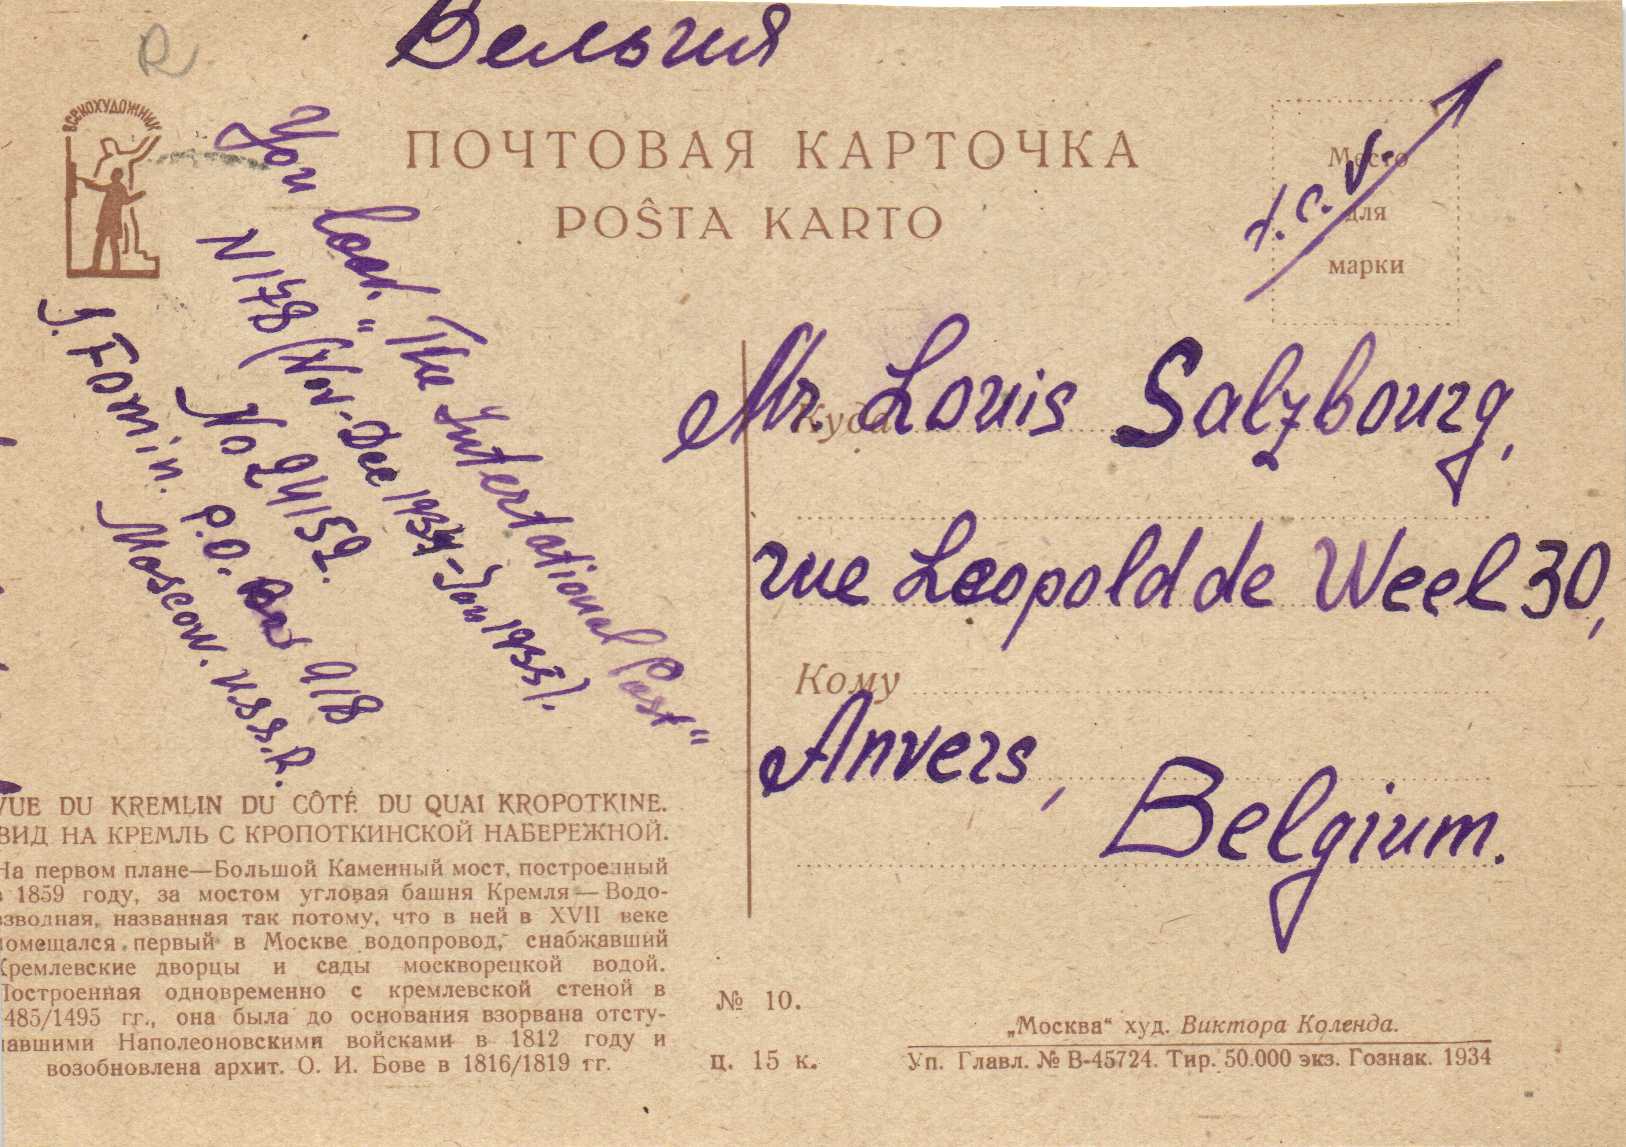 Бельгия
R
ВСЕКОХУДОЖНИК
ПОЧТОВАЯ КАРТОЧКА
POŜTA KARTO
Место
для
марки
t.c.v.
You look "The Intertational Post"
N 178 (Nov-Dec 1934-Jan 1935).
No 24152.
J. Fomin. P.O. Box 918
Moscow. U.S.S.R.
Куда
Mr. Louis Salzbourg,
rue Leopold de Weel 30,
Кому
Anvers,
Belgium.
VUE DU KREMLIN DU CÔTÉ DU QUAI KROPOTKINE.
ВИД НА КРЕМЛЬ С КРОПОТКИНСКОЙ НАБЕРЕЖНОЙ.
На первом плане—Большой Каменный мост, построенный
в 1859 году, за мостом угловая башня Кремля — Водо-
взводная, названная так потому, что в ней в XVII веке
помещался первый в Москве водопровод, снабжавший
Кремлевские дворцы и сады москворецкой водой.
Построенная одновременно с кремлевской стеной в
485/1495 гг., она была до основания взорвана отсту-
павшими Наполеоновскими войсками в 1812 году и
возобновлена архит. О. И. Бове в 1816/1819 гг.
№ 10.
ц. 15 к.
„Москва“ худ. Виктора Коленда.
Уп. Главл. № В-45724. Тир. 50.000 экз. Гознак. 1934